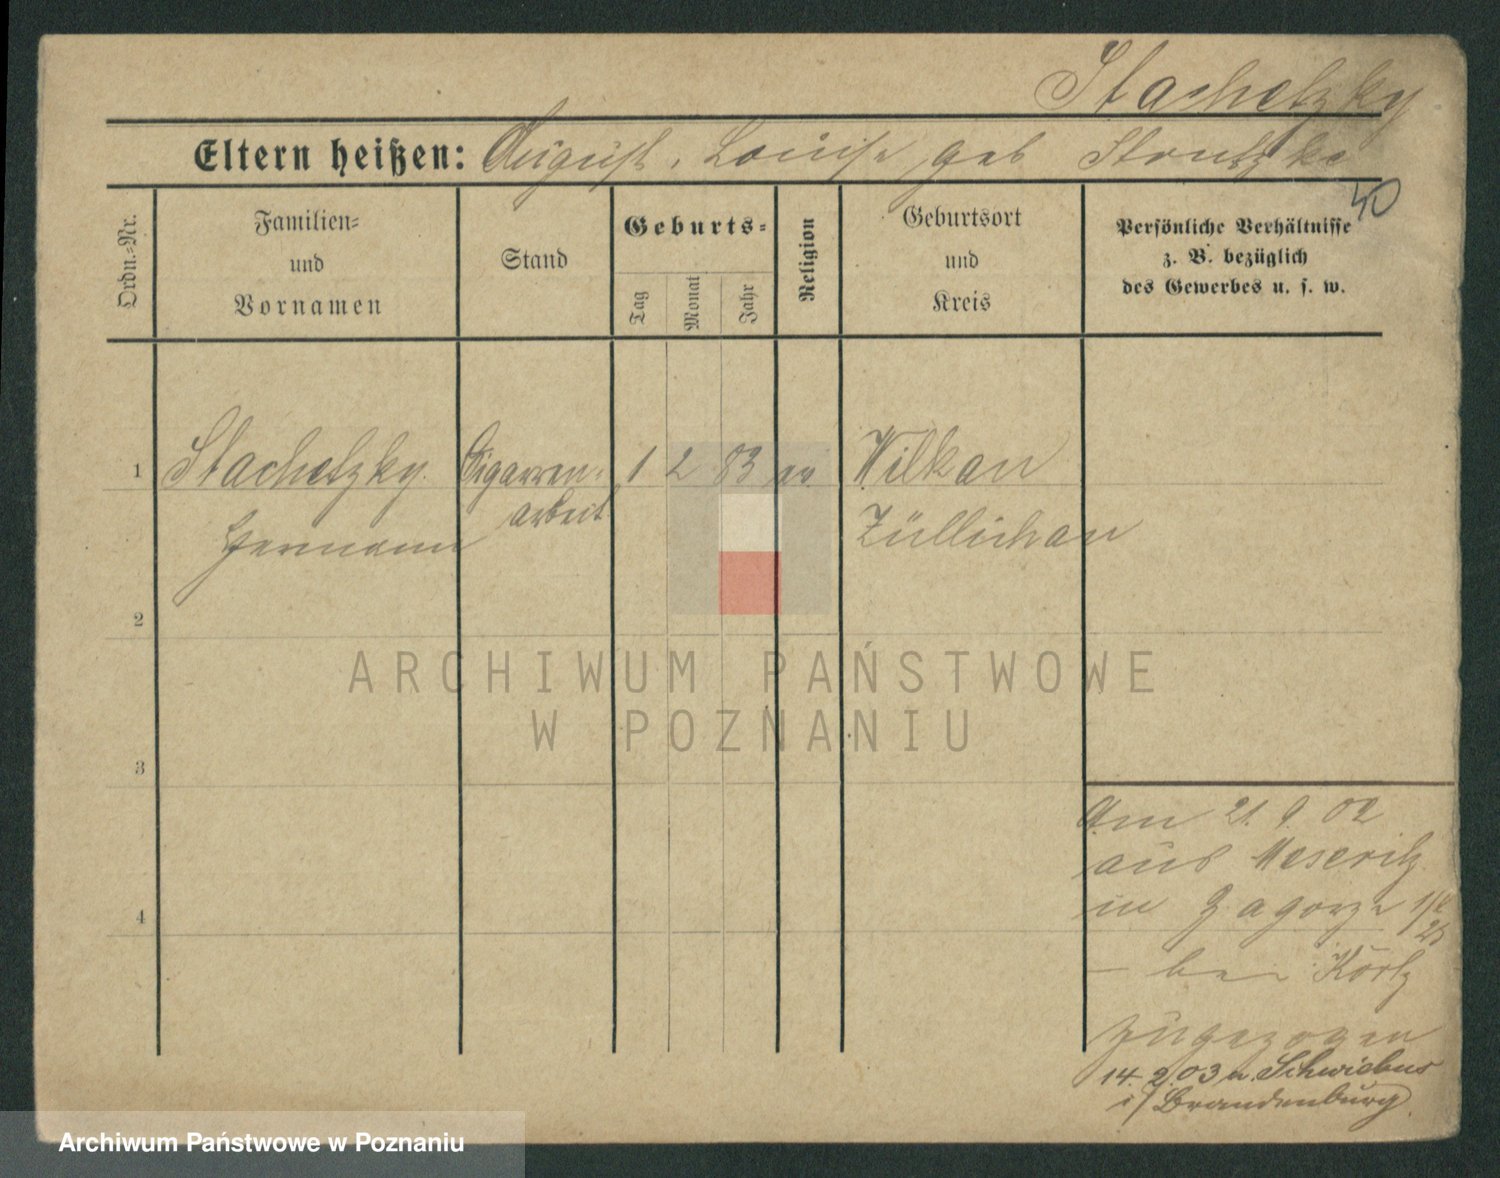 Stachetzky
Eltern heißen: August, Louise geb Strutzke
Ordn.-Nr.
Familien-
und
Vornamen
Stand
Geburts-
Tag
Monat
Jahr
Religion
Geburtsort
und
Kreis
Persönliche Verhältnisse
z. B. bezüglich
des Gewerbes u. s. w.
1 Stachetzky. Cigarren- 1 2 83 ev. Wilkau
arbeit.
Hermann
Züllichau
2
3
4
ARCHIWUM PAŃSTWOWE
W POZNANIU
Am 21. 9. 02
aus Meseritz
in Zagorze
bei Körtz
zugezogen
14. 2. 03 n. Schwiebus
i/ Brandenburg.
Archiwum Państwowe w Poznaniu